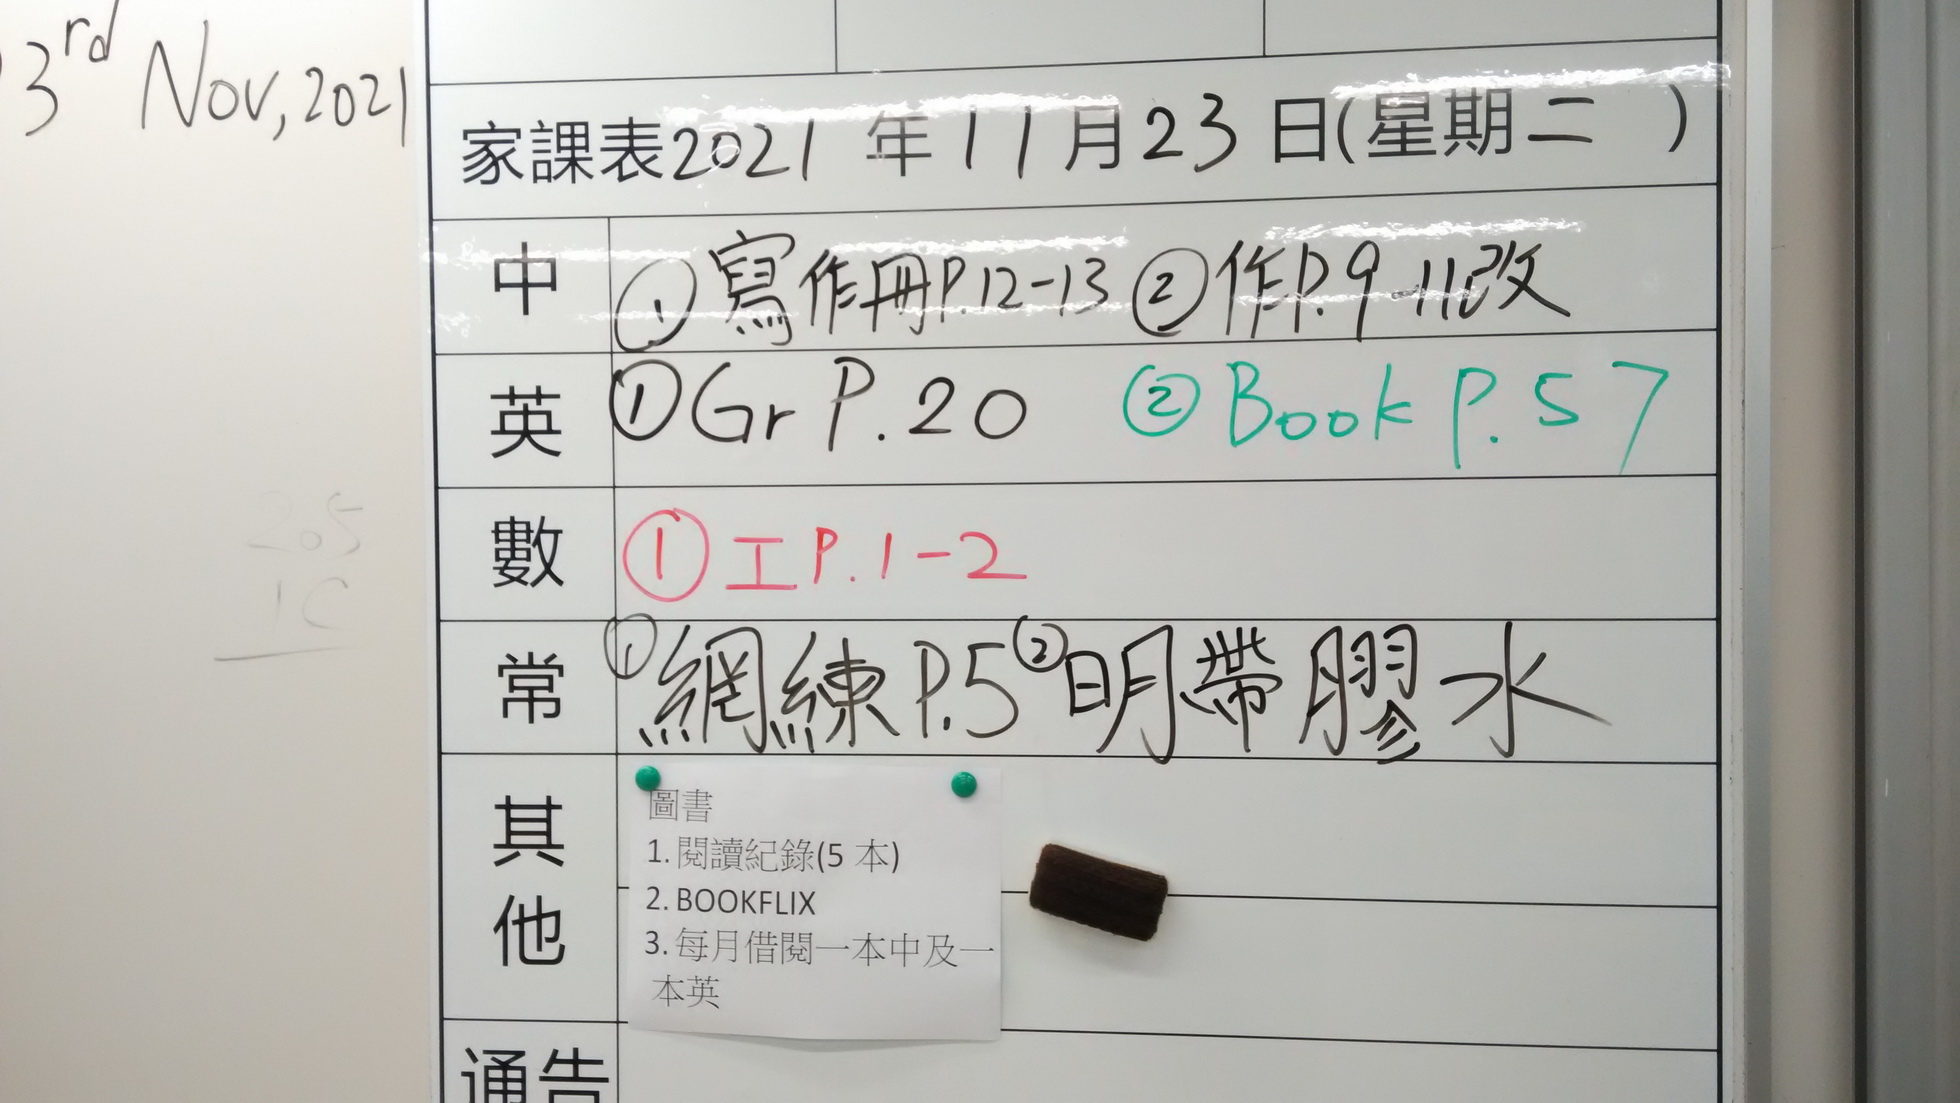 3rd Nov, 2021
家課表2021年11月23日(星期二 )
中 ①寫作冊P.12-13 ②作P.9-11改
英 ①Gr P.20 ②Book P.57
數 ①工P.1-2
常 ①網練P.5 ②明帶膠水
其他
圖書
1. 閱讀紀錄(5 本)
2. BOOKFLIX
3. 每月借閱一本中及一
本英
通告
205